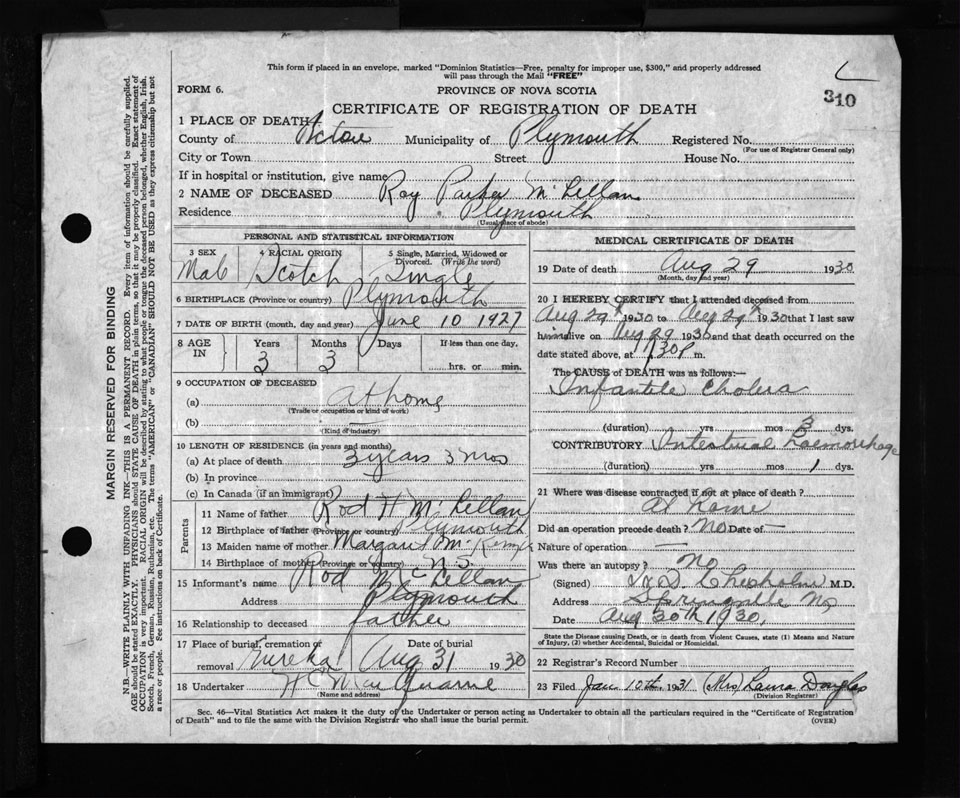 This form if placed in an envelope, marked "Dominion Statistics—Free, penalty for improper use, $300," and properly addressed
will pass through the Mail "FREE"
FORM 6.
PROVINCE OF NOVA SCOTIA
310
CERTIFICATE OF REGISTRATION OF DEATH
1 PLACE OF DEATH
County of Pictou Municipality of Plymouth Registered No.
(For use of Registrar General only)
City or Town Street House No.
If in hospital or institution, give name
2 NAME OF DECEASED Roy Parker McLellan
Residence Plymouth
(Usual place of abode)
MARGIN RESERVED FOR BINDING
N.B.—WRITE PLAINLY WITH UNFADING INK—THIS IS A PERMANENT RECORD. Every item of information should be carefully supplied.
AGE should be stated EXACTLY. PHYSICIANS should STATE CAUSE OF DEATH in plain terms, so that it may be properly classified. Exact statement of
OCCUPATION is very important. RACIAL ORIGIN will be described by stating to what people or tongue the deceased person belonged, whether English, Irish,
Scotch, French, German, Russian, Ruthenian, etc. The terms "AMERICAN" or "CANADIAN" SHOULD NOT BE USED as they express citizenship but not
a race or people. See instructions on back of Certificate.
PERSONAL AND STATISTICAL INFORMATION
3 SEX
Male
4 RACIAL ORIGIN
Scotch
5 Single, Married, Widowed or
Divorced. (Write the word)
Single
6 BIRTHPLACE (Province or country) Plymouth
7 DATE OF BIRTH (month, day and year) June 10 1927
8 AGE
IN
Years
3
Months
3
Days
If less than one day,
hrs. or min.
9 OCCUPATION OF DECEASED
(a) At home
(Trade or occupation or kind of work)
(b)
(Kind of industry)
10 LENGTH OF RESIDENCE (in years and months)
(a) At place of death 3 years 3 mos
(b) In province
(c) In Canada (if an immigrant)
Parents
11 Name of father Rod H McLellan
12 Birthplace of father (Province or country) Plymouth
13 Maiden name of mother
14 Birthplace of mother (Province or country) N.S.
15 Informant's name Rod McLellan
Address Plymouth
16 Relationship to deceased father
17 Place of burial, cremation or
removal Eureka
Date of burial
Aug 31 1930
18 Undertaker
(Name and address)
MEDICAL CERTIFICATE OF DEATH
19 Date of death Aug 29 1930
(Month, day and year)
20 I HEREBY CERTIFY that I attended deceased from
Aug 29th 1930 to Aug 29th 1930 that I last saw
him alive on Aug 29 1930 and that death occurred on the
date stated above, at 1.30 P m.
The CAUSE of DEATH was as follows:—
Infantile Cholera
(duration) yrs mos 3 dys.
CONTRIBUTORY Intestinal haemorrhage
(duration) yrs mos 1 dys.
21 Where was disease contracted if not at place of death?
At Home
Did an operation precede death? No Date of—
Nature of operation —
Was there an autopsy? No
(Signed) Chisholm M.D.
Address Springville NS
Date Aug 30th 1930.
State the Disease causing Death, or in death from Violent Causes, state (1) Means and Nature
of Injury, (2) whether Accidental, Suicidal or Homicidal.
22 Registrar's Record Number
23 Filed Jan 10th 1931 (Mrs) Laura Douglas
(Division Registrar)
Sec. 46—Vital Statistics Act makes it the duty of the Undertaker or person acting as Undertaker to obtain all the particulars required in the "Certificate of Registration
of Death" and to file the same with the Division Registrar who shall issue the burial permit.
(OVER)